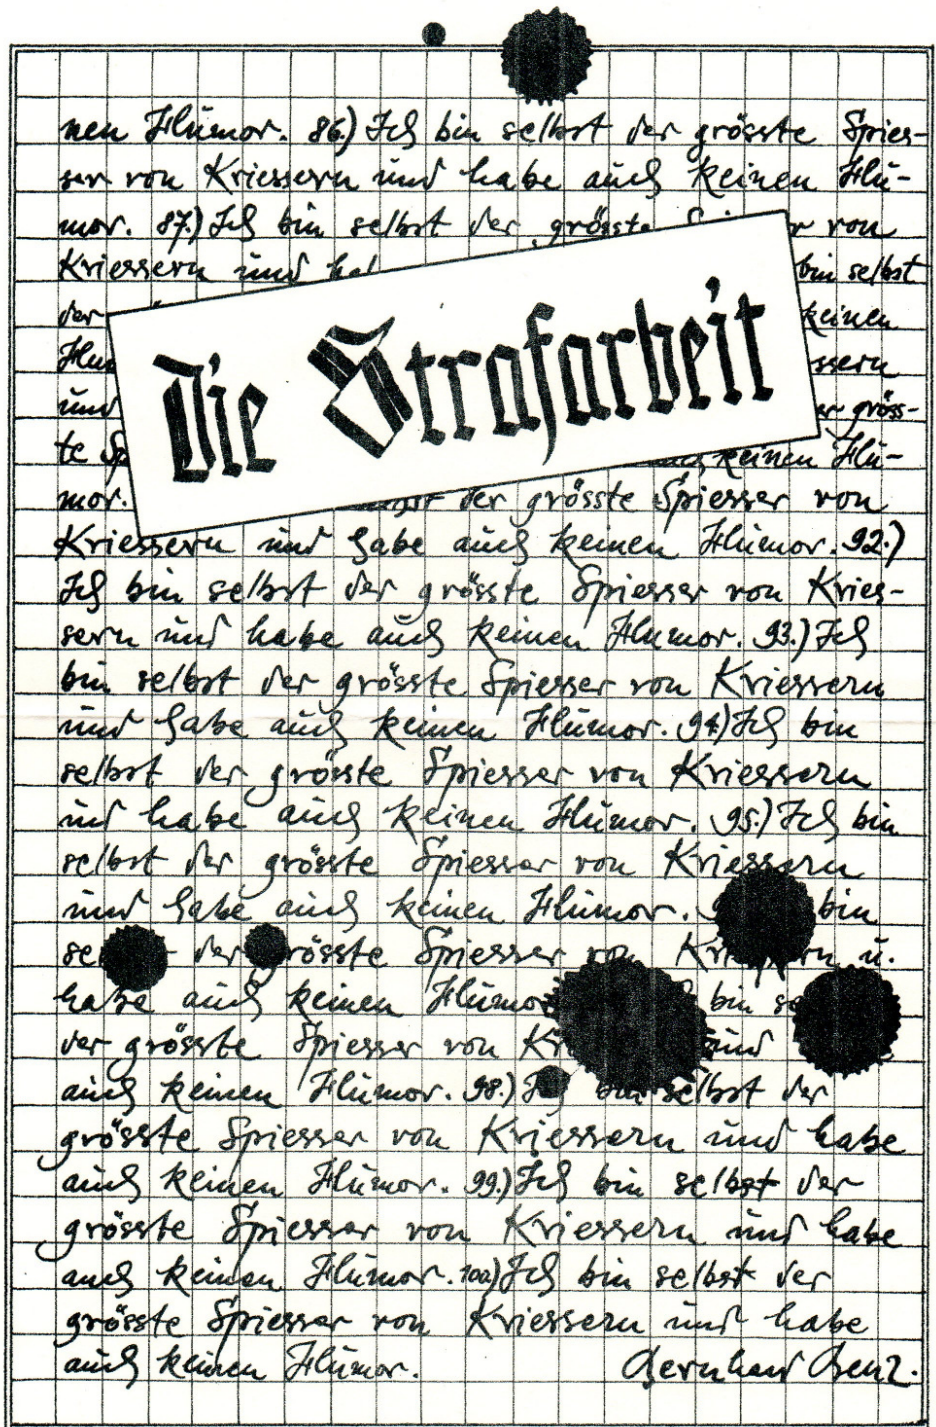 nen Humor. 86.) Ich bin selbst der grösste Spies-
ser von Kriessern und habe auch keinen Hu-
mor. 87.) Ich bin selbst der grösste von
Kriessern und bin selbst
der keinen
Die Strafarbeit
und gröss-
te keinen Hu-
mor. der grösste Spiesser von
Kriessern und habe auch keinen Humor. 92.)
Ich bin selbst der grösste Spiesser von Kries-
sern und habe auch keinen Humor. 93.) Ich
bin selbst der grösste Spiesser von Kriessern
und habe auch keinen Humor. 94.) Ich bin
selbst der grösste Spiesser von Kriessern
und habe auch keinen Humor. 95.) Ich bin
selbst der grösste Spiesser von Kriessern
und habe auch keinen Humor. bin
der grösste Spiesser von Kriessern u.
habe auch keinen Humor bin
der grösste Spiesser von und
auch keinen Humor. 98.) Ich bin selbst der
grösste Spiesser von Kriessern und habe
auch keinen Humor. 99.) Ich bin selbst der
grösste Spiesser von Kriessern und habe
auch keinen Humor. 100.) Ich bin selbst der
grösste Spiesser von Kriessern und habe
auch keinen Humor. Bernhard Benz.